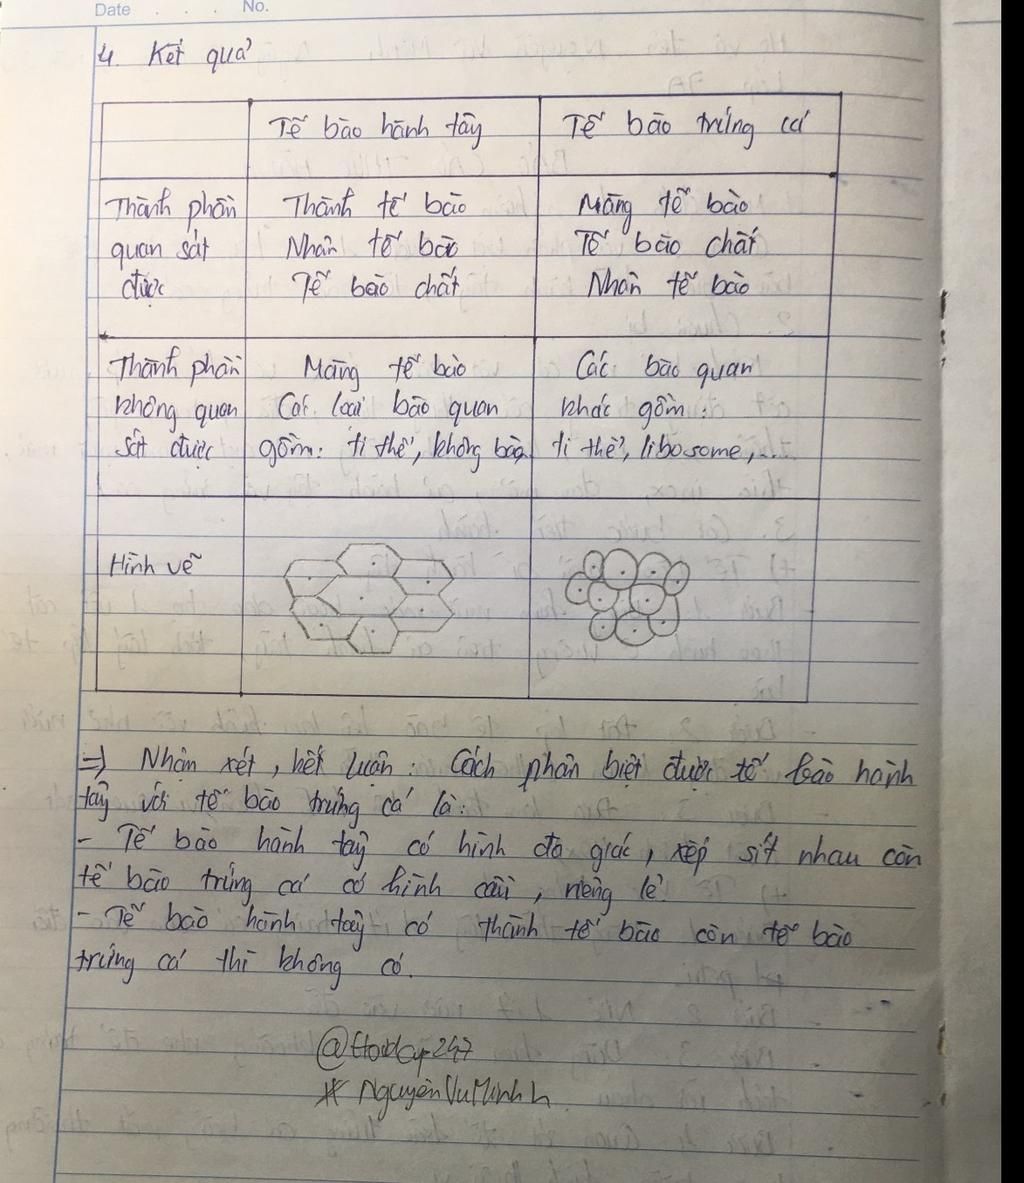 Date . . . No.
4. Kết quả
Tế bào hành tây
Tế bào trứng cá
Thành phần
quan sát
được
Thành tế bào
Nhân tế bào
Tế bào chất
Màng tế bào
Tế bào chất
Nhân tế bào
Thành phần
không quan
sát được
Màng tế bào
Các loại bào quan
gồm: ti thể, không bào
Các bào quan
khác gồm:
ti thể, libosome,...
Hình vẽ
=> Nhận xét, kết luận: Cách phân biệt được tế bào hành
tây với tế bào trứng cá là:
- Tế bào hành tây có hình đa giác, xếp sít nhau còn
tế bào trứng cá có hình cầu, riêng lẻ.
- Tế bào hành tây có thành tế bào còn tế bào
trứng cá thì không có.
* NguyenVuMinhh